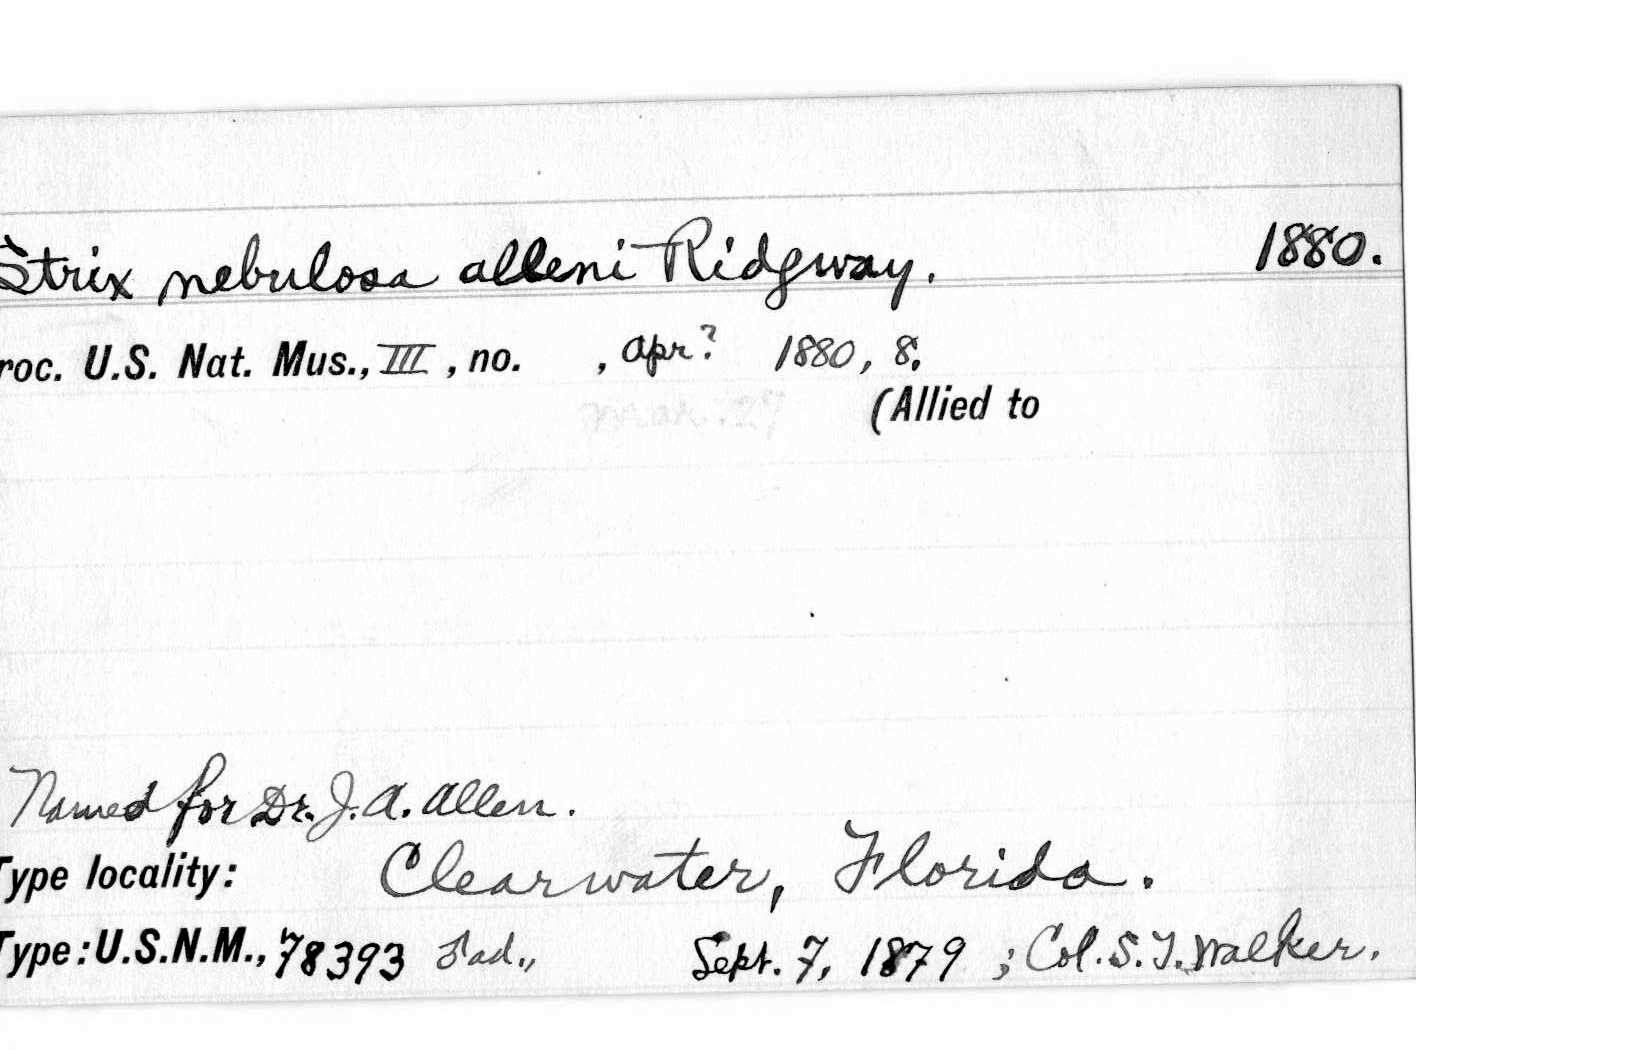 Strix nebulosa alleni Ridgway. 1880.
roc. U.S. Nat. Mus., III, no. , Apr? 1880, 8.
mar. 27 (Allied to
Named for Dr. J. A. Allen.
Type locality: Clearwater, Florida.
Type: U.S.N.M., 78393 ad., Sept. 7, 1879; Col. S. T. Walker.